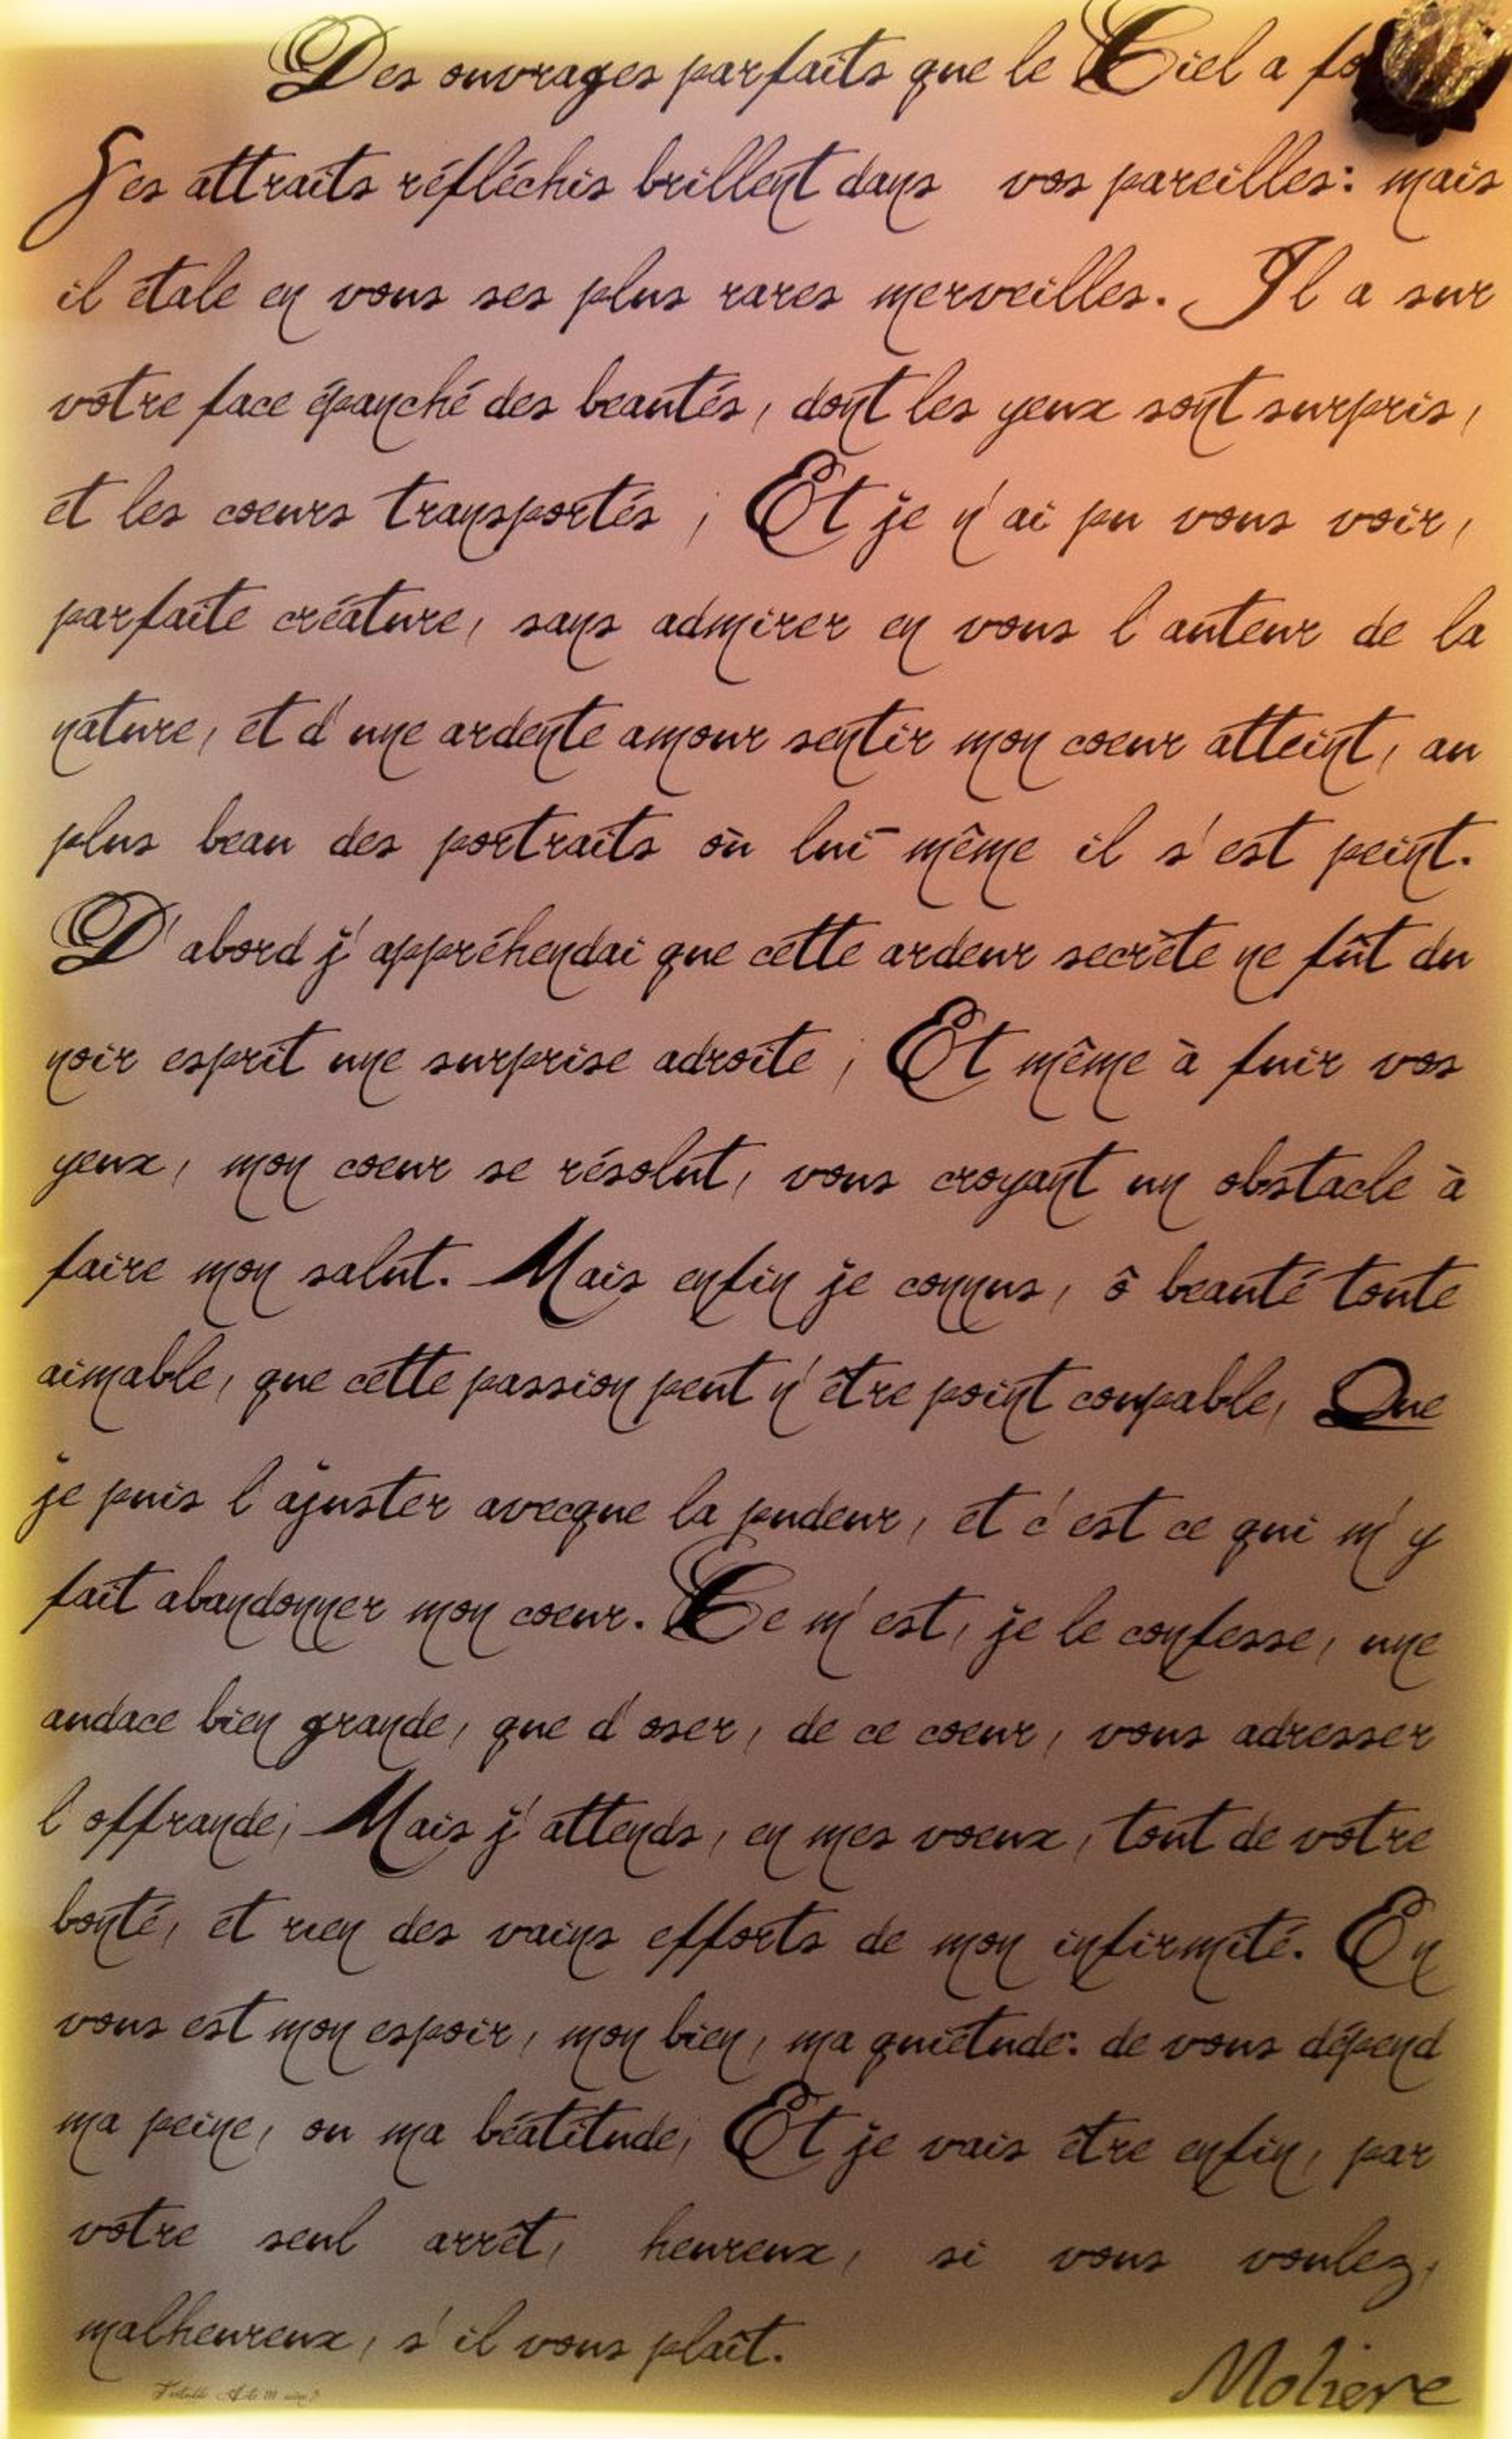 Des ouvrages parfaits que le Ciel a fo
Ses attraits réfléchis brillent dans vos pareilles: mais
il étale en vous ses plus rares merveilles. Il a sur
votre face épanché des beautés, dont les yeux sont surpris,
et les coeurs transportés ; Et je n'ai pu vous voir,
parfaite créature, sans admirer en vous l'auteur de la
nature, et d'une ardente amour sentir mon coeur atteint, au
plus beau des portraits où lui-même il s'est peint.
D'abord j'appréhendai que cette ardeur secrète ne fût du
noir esprit une surprise adroite ; Et même à fuir vos
yeux, mon coeur se résolut, vous croyant un obstacle à
faire mon salut. Mais enfin je connus, ô beauté toute
aimable, que cette passion peut n'être point coupable, Que
je puis l'ajuster avecque la pudeur, et c'est ce qui m'y
fait abandonner mon coeur. Ce m'est, je le confesse, une
audace bien grande, que d'oser, de ce coeur, vous adresser
l'offrande; Mais j'attends, en mes voeux, tout de votre
bonté, et rien des vains efforts de mon infirmité. En
vous est mon espoir, mon bien, ma quiétude: de vous dépend
ma peine, ou ma béatitude; Et je vais être enfin, par
votre seul arrêt, heureux, si vous voulez,
malheureux, s'il vous plaît.
Molière